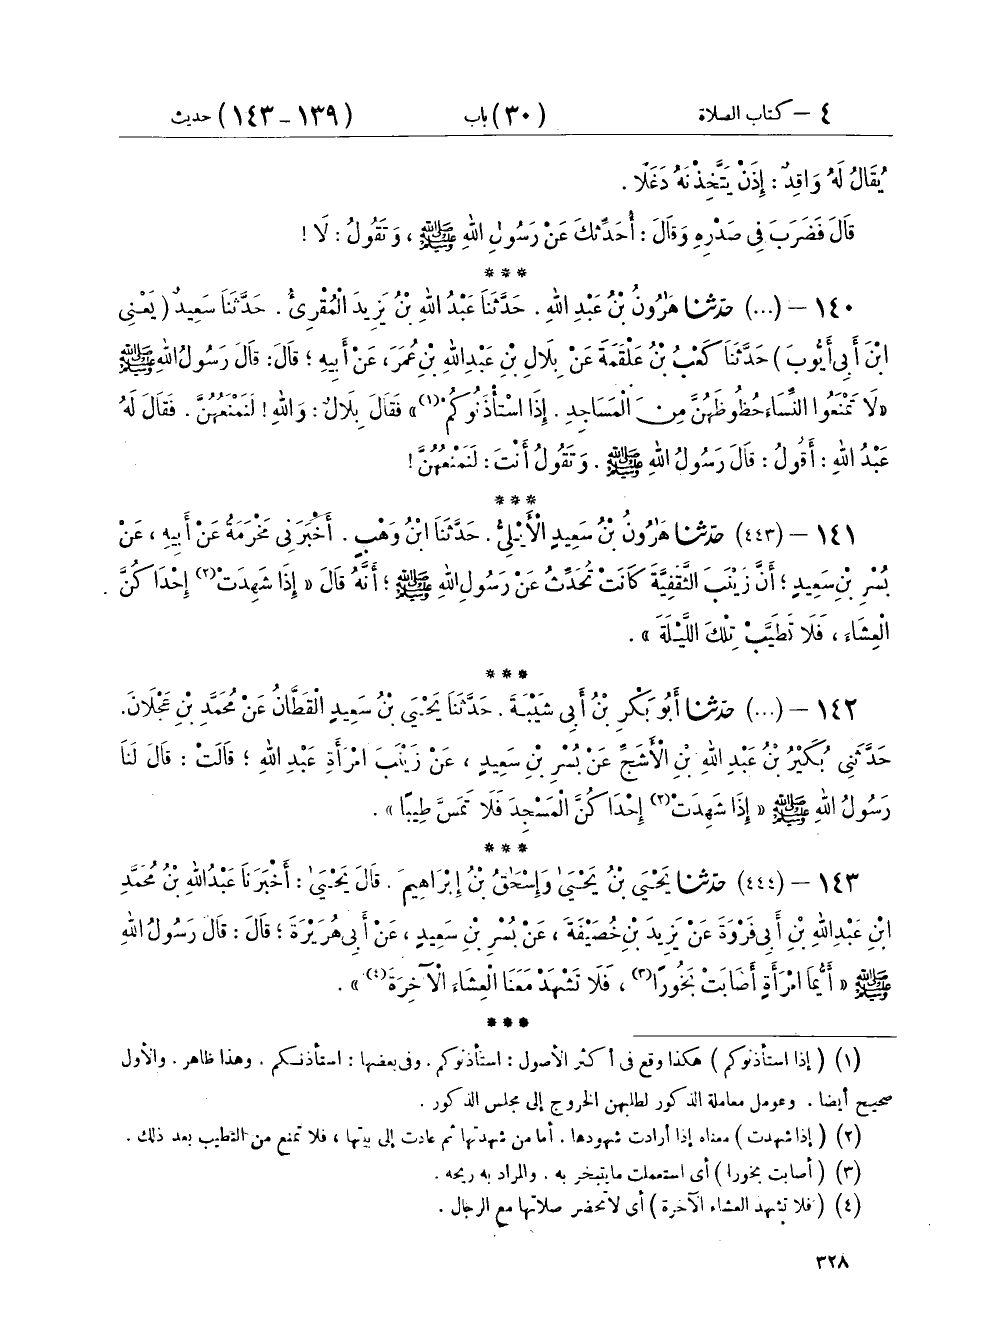 ٤ – كتاب الصلاة (٣٠) باب (١٣٩–١٤٣) حديث
يُقَالُ لَهُ وَاقِدٌ : إِذَنْ يَتَّخِذْنَهُ دَغَلًا .
قَالَ فَضَرَبَ فِى صَدْرِهِ وَقَالَ : أُحَدِّثُكَ عَنْ رَسُولِ اللهِ ﷺ ، وَتَقُولُ : لَا !
***
١٤٠ – (...) حدّثنا هَٰرُونُ بْنُ عَبْدِ اللهِ . حَدَّثَنَا عَبْدُ اللهِ بْنُ يَزِيدَ الْمُقْرِئُ . حَدَّثَنَا سَعِيدٌ ( يَعْنِى
ابْنَ أَبِى أَيُّوبَ ) حَدَّثَنَا كَعْبُ بْنُ عَلْقَمَةَ عَنْ بِلَالِ بْنِ عَبْدِ اللهِ بْنِ عُمَرَ، عَنْ أَبِيهِ ؛ قَالَ: قَالَ رَسُولُ اللهِ ﷺ
«لَا تَمْنَعُوا النِّسَاءَ حُظُوظَهُنَّ مِنَ الْمَسَاجِدِ . إِذَا اسْتَأْذَنُوكُمْ(١)» فَقَالَ بِلَالٌ : وَاللهِ ! لَنَمْنَعُهُنَّ . فَقَالَ لَهُ
عَبْدُ اللهِ : أَقُولُ : قَالَ رَسُولُ اللهِ ﷺ . وَتَقُولُ أَنْتَ : لَنَمْنَعُهُنَّ !
***
١٤١ – (٤٤٣) حدّثنا هَٰرُونُ بْنُ سَعِيدٍ الْأَيْلِىُّ . حَدَّثَنَا ابْنُ وَهْبٍ . أَخْبَرَنِى مَخْرَمَةُ عَنْ أَبِيهِ ، عَنْ
بُسْرِ بْنِ سَعِيدٍ ؛ أَنَّ زَيْنَبَ الثَّقَفِيَّةَ كَانَتْ تُحَدِّثُ عَنْ رَسُولِ اللهِ ﷺ ؛ أَنَّهُ قَالَ « إِذَا شَهِدَتْ(٢) إِحْدَاكُنَّ
الْعِشَاءَ ، فَلَا تَطَيَّبْ تِلْكَ اللَّيْلَةَ » .
***
١٤٢ – (...) حدّثنا أَبُو بَكْرِ بْنُ أَبِى شَيْبَةَ . حَدَّثَنَا يَحْيَى بْنُ سَعِيدٍ الْقَطَّانُ عَنْ مُحَمَّدِ بْنِ عَجْلَانَ .
حَدَّثَنِى بُكَيْرُ بْنُ عَبْدِ اللهِ بْنِ الْأَشَجِّ عَنْ بُسْرِ بْنِ سَعِيدٍ ، عَنْ زَيْنَبَ امْرَأَةِ عَبْدِ اللهِ ؛ قَالَتْ : قَالَ لَنَا
رَسُولُ اللهِ ﷺ « إِذَا شَهِدَتْ(٢) إِحْدَاكُنَّ الْمَسْجِدَ فَلَا تَمَسَّ طِيبًا » .
***
١٤٣ – (٤٤٤) حدّثنا يَحْيَى بْنُ يَحْيَىٰ وَإِسْحَٰقُ بْنُ إِبْرَاهِيمَ . قَالَ يَحْيَىٰ : أَخْبَرَنَا عَبْدُ اللهِ بْنُ مُحَمَّدِ
ابْنِ عَبْدِ اللهِ بْنِ أَبِى فَرْوَةَ عَنْ يَزِيدَ بْنِ خُصَيْفَةَ ، عَنْ بُسْرِ بْنِ سَعِيدٍ ، عَنْ أَبِى هُرَيْرَةَ ؛ قَالَ : قَالَ رَسُولُ اللهِ
ﷺ « أَيُّمَا امْرَأَةٍ أَصَابَتْ بَخُورًا(٣) ، فَلَا تَشْهَدْ مَعَنَا الْعِشَاءَ الْآخِرَةَ(٤) » .
***
(١) ( إذا استأذنوكم ) هكذا وقع فى أكثر الأصول : استأذنوكم . وفى بعضها : استأذنكم . وهذا ظاهر . والأول
صحيح أيضا . وعومل معاملة الذكور لطلبهن الخروج إلى مجلس الذكور .
(٢) ( إذا شهدت ) معناه إذا أرادت شهودها . أما من شهدتها ثم عادت إلى بيتها ، فلا تمنع من التطيب بعد ذلك .
(٣) ( أصابت بخورا ) أى استعملت ما يتبخر به . والمراد به ريحه .
(٤) ( فلا تشهد العشاء الآخرة ) أى لا تحضر صلاتها مع الرجال .
٣٢٨